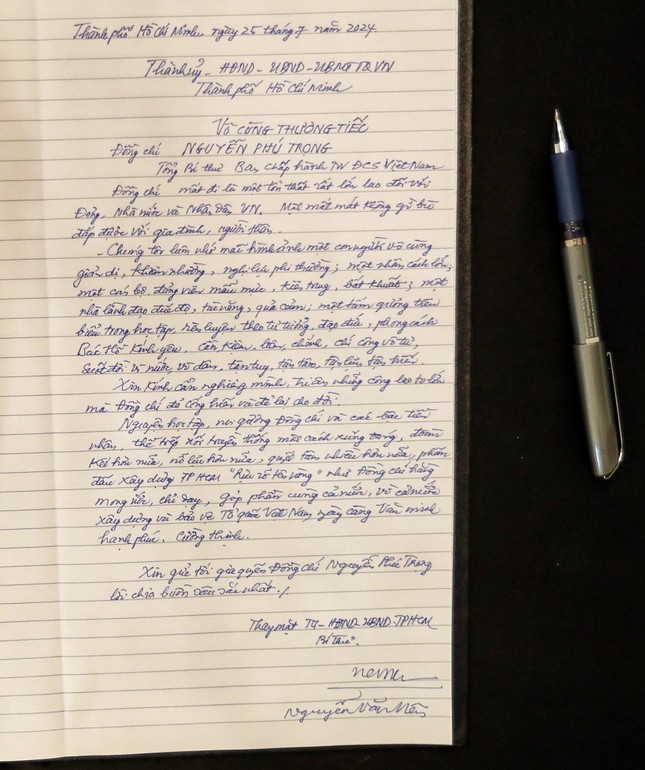 Thành phố Hồ Chí Minh, ngày 25 tháng 7 năm 2024.
Thành ủy - HĐND - UBND - UBMTTQVN
Thành phố Hồ Chí Minh
Vô cùng THƯƠNG TIẾC
Đồng chí NGUYỄN PHÚ TRỌNG
Tổng Bí thư Ban Chấp hành TW ĐCS Việt Nam
Đồng chí mất đi là một tổn thất rất lớn lao đối với
Đảng, Nhà nước và Nhân Dân VN. Một mất mát không gì bù
đắp được với gia đình, người thân.
- Chúng tôi luôn nhớ mãi hình ảnh một con người vô cùng
giản dị, khiêm nhường, nghị lực phi thường; một nhân cách lớn;
một cán bộ, đảng viên mẫu mực, kiên trung, bất khuất; một
nhà lãnh đạo đức độ, tài năng, quả cảm; một tấm gương tiêu
biểu trong học tập, rèn luyện theo tư tưởng, đạo đức, phong cách
Bác Hồ kính yêu. Cần, kiệm, liêm, chính, chí công vô tư,
suốt đời vì nước, vì dân, tận tụy, tận tâm, tận lực, tận hiến.
Xin kính cẩn nghiêng mình, tri ân những công lao to lớn
mà Đồng chí đã cống hiến và để lại cho đời.
Nguyện học tập, noi gương Đồng chí và các bậc tiền
nhân, thế hệ nối truyền thống một cách xứng đáng, đoàn
kết hơn nữa, nỗ lực hơn nữa, quyết tâm nhiều hơn nữa, phấn
đấu xây dựng TPHCM "Rực rỡ tên vàng" như Đồng chí hằng
mong ước, chỉ dạy, góp phần cùng cả nước, vì cả nước
xây dựng và bảo vệ Tổ quốc Việt Nam, ngày càng Văn minh
hạnh phúc, Cường thịnh.
Xin gửi tới gia quyến Đồng chí Nguyễn Phú Trọng
lời chia buồn sâu sắc nhất./.
Thay mặt TU - HĐND - UBND - TPHCM
Bí thư
Nguyễn Văn Nên